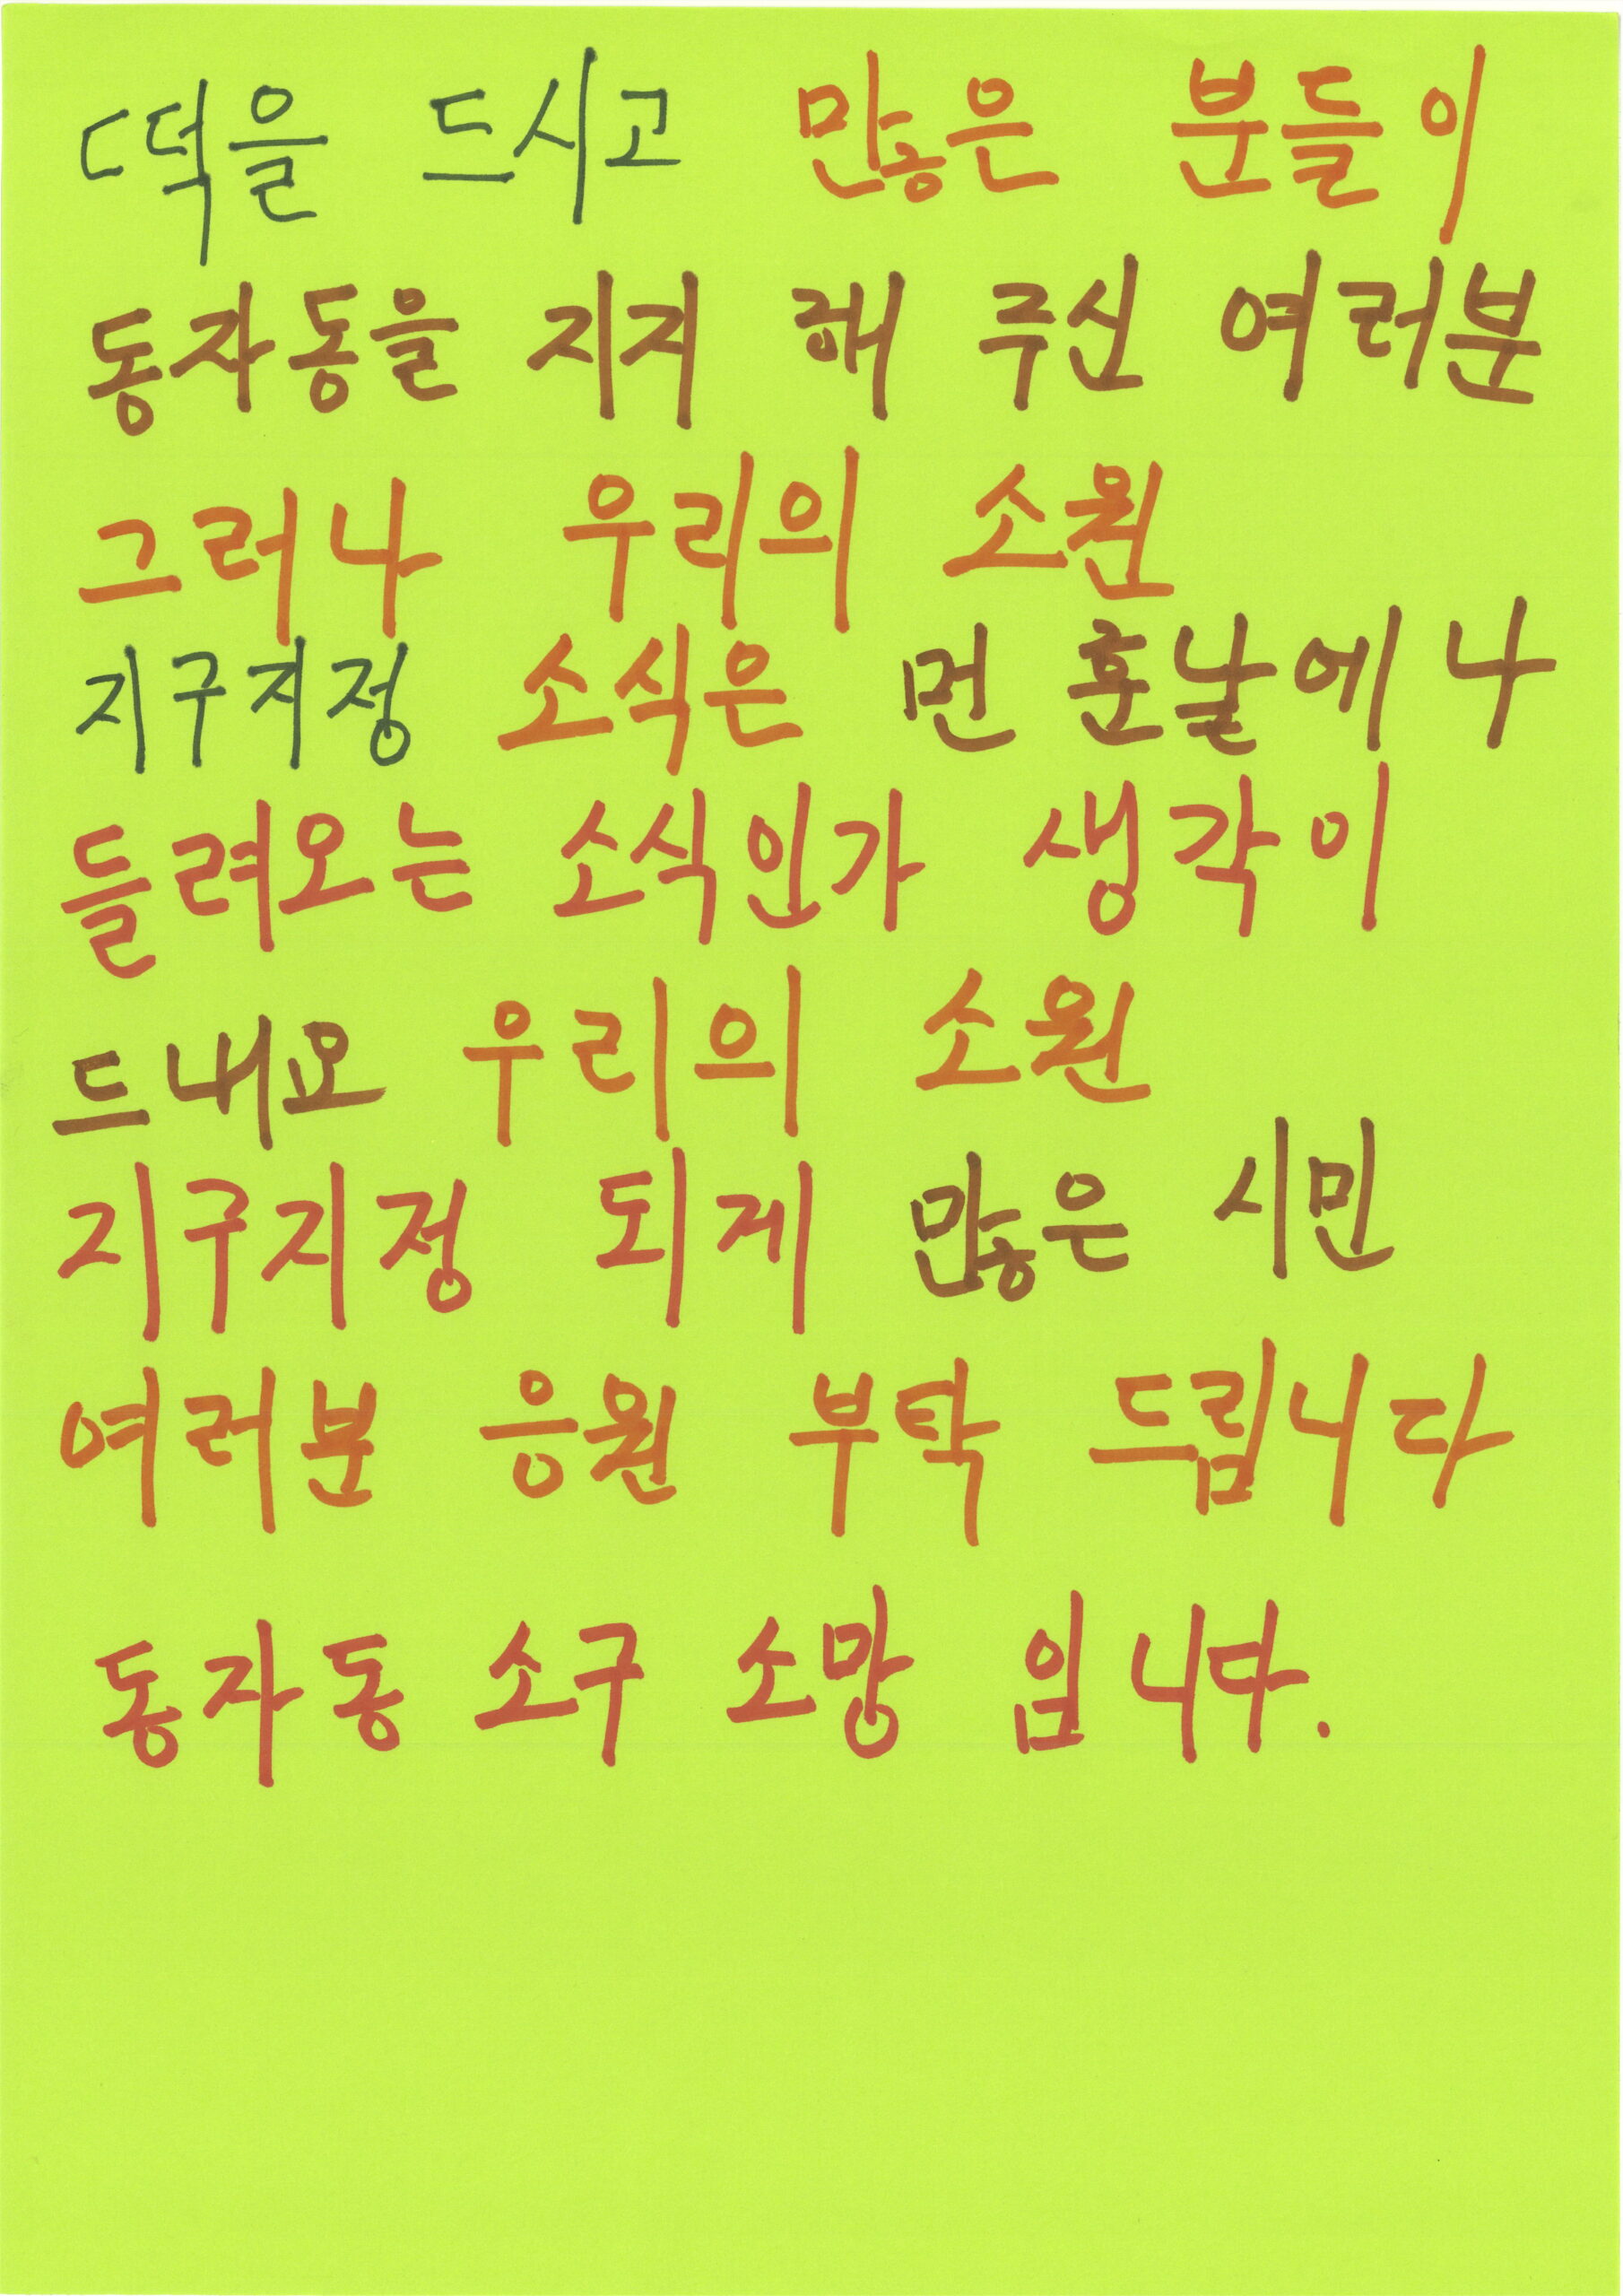 떡을 드시고 많은 분들이
동자동을 지지 해 주신 여러분
그러나 우리의 소원
지구지정 소식은 먼 훈날에 나
들려오는 소식인가 생각이
드내요 우리의 소원
지구지정 되게 많은 시민
여러분 응원 부탁 드립니다
동자동 소구 소망 입니다.